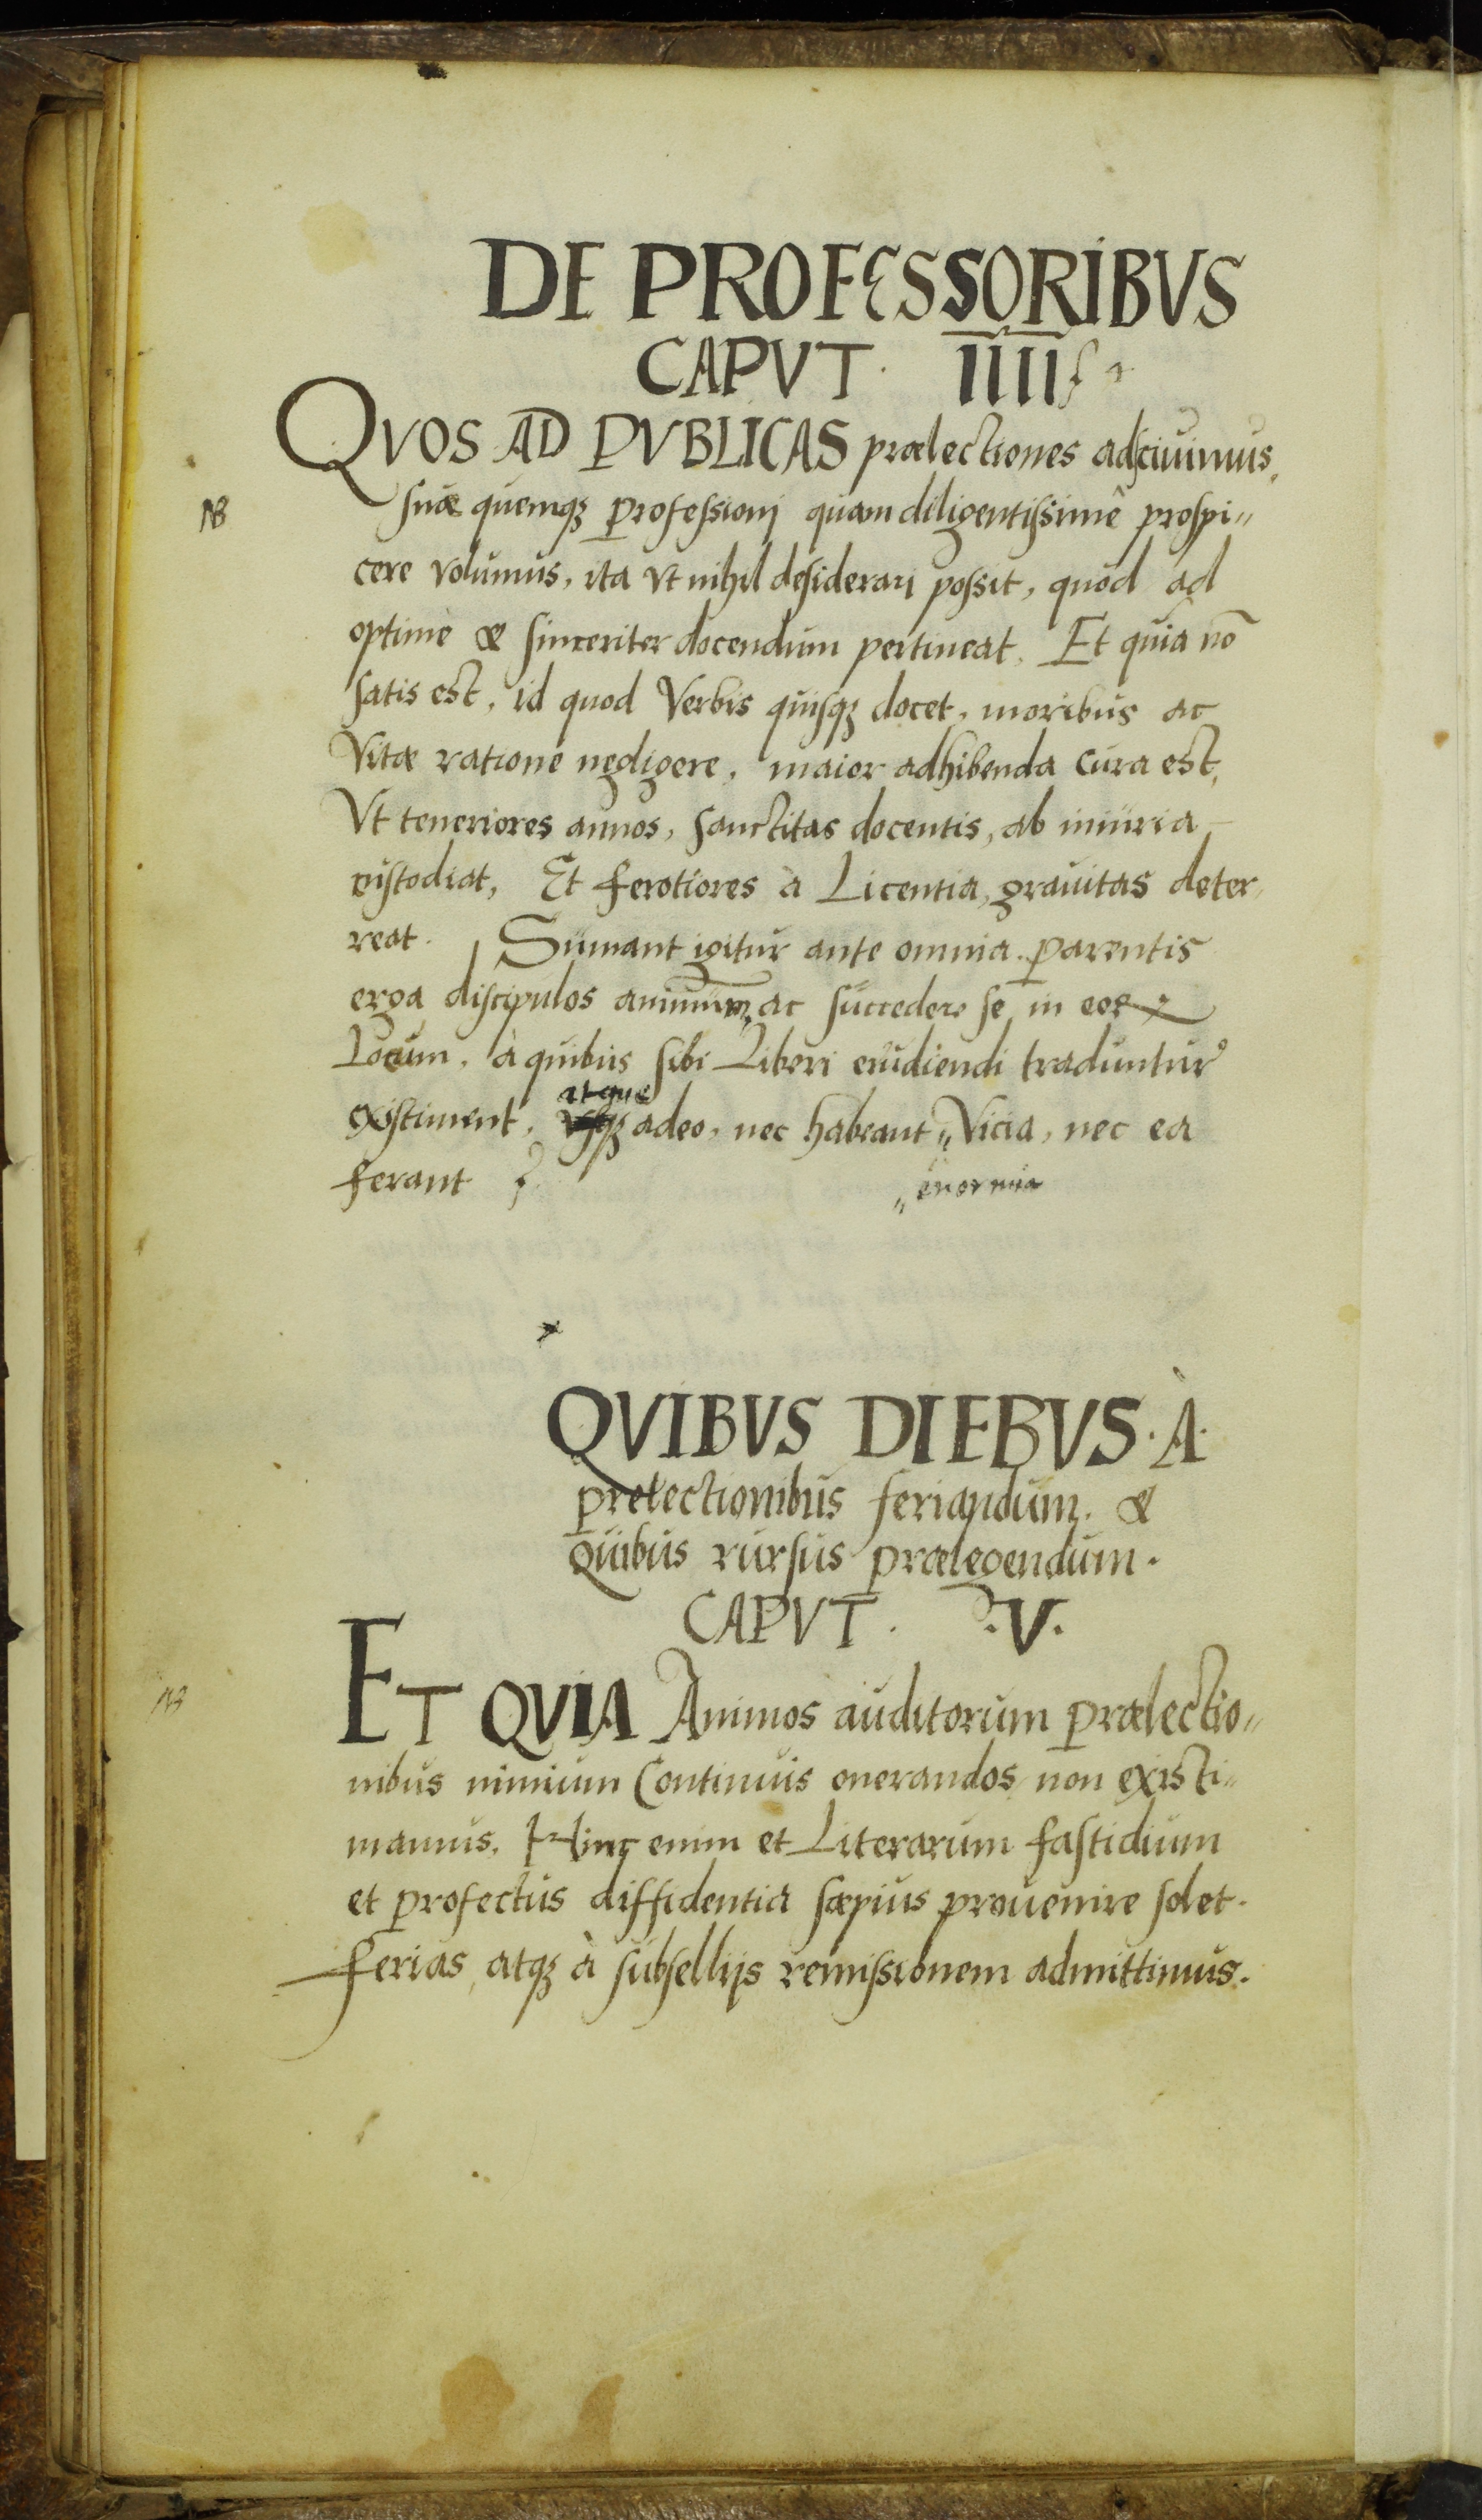 DE PROFESSORIBVS
CAPVT. IIII
QVOS AD PVBLICAS prælectiones adsciuimus,
NB
suæ quemqꝫ professionj quam diligentissimè prospi〃
cere volumus, ita vt nihil desiderarj possit, quod ad
optimè & sinceriter docendum pertineat. Et quia nō
satis est, id quod Verbis quisqꝫ docet, moribus ac
Vitæ ratione negligere, maior adhibenda cura est,
Vt teneriores annos, sanctitas docentis, ab iniuria
custodiat, Et ferotiores à Licentia, grauitas deter
reat. Sumant igitur ante omnia parentis
erga discipulos animum, ac succedere se in eoꝝ
Locum, à quibus sibi Liberi erudiendi traduntur
atque
existiment, vsqꝫ adeo, nec habeant〃 Vicia, nec ea
ferant
〃enormia
QVIBVS DIEBVS. À.
prelectionibus feriandum. &
Quibus rursus prælegendum.
CAPVT. .V.
NB
ET QVIA Animos auditorum prælectio〃
nibus nimium Continuis onerandos non existi〃
mamus. Hinc enim et Literarum fastidium
et profectus diffidentia sæpius prouenire solet.
ferias atqꝫ à subsellijs remissionem admittimus.